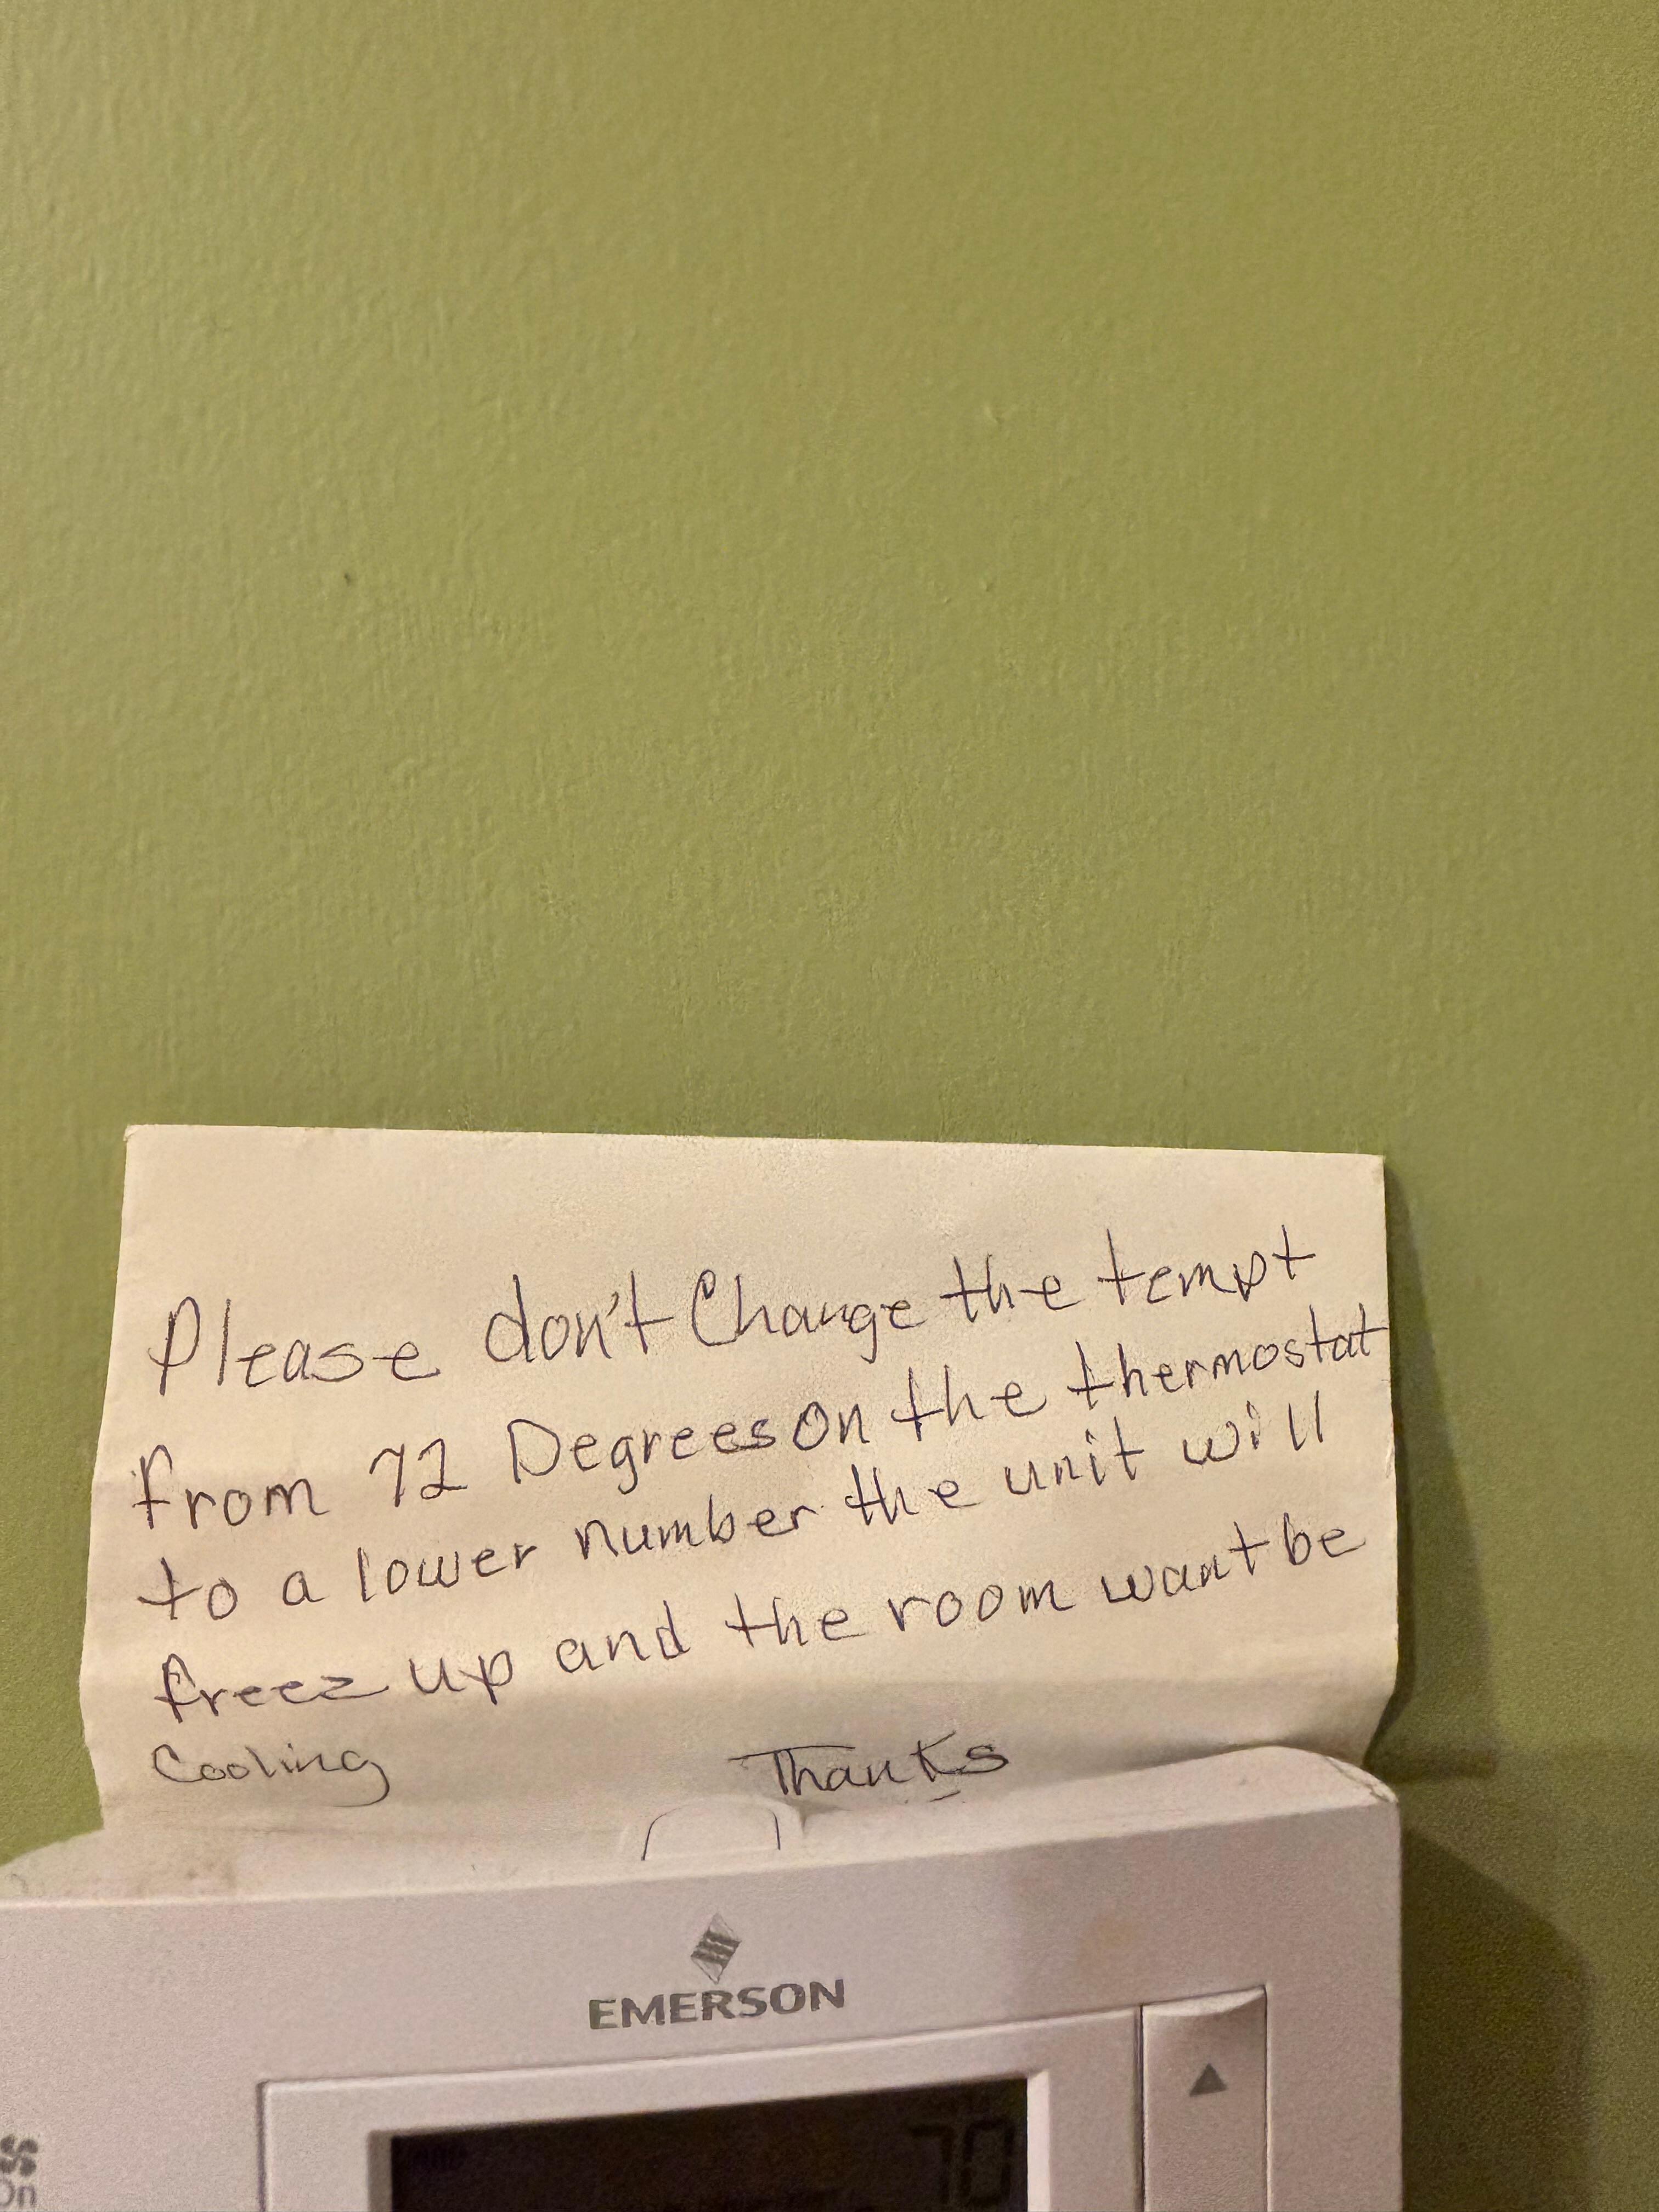 Please don't Change the tempt
from 72 Degrees on the thermostat
to a lower number the unit will
freez up and the room want be
Cooling Thanks
EMERSON
70
On